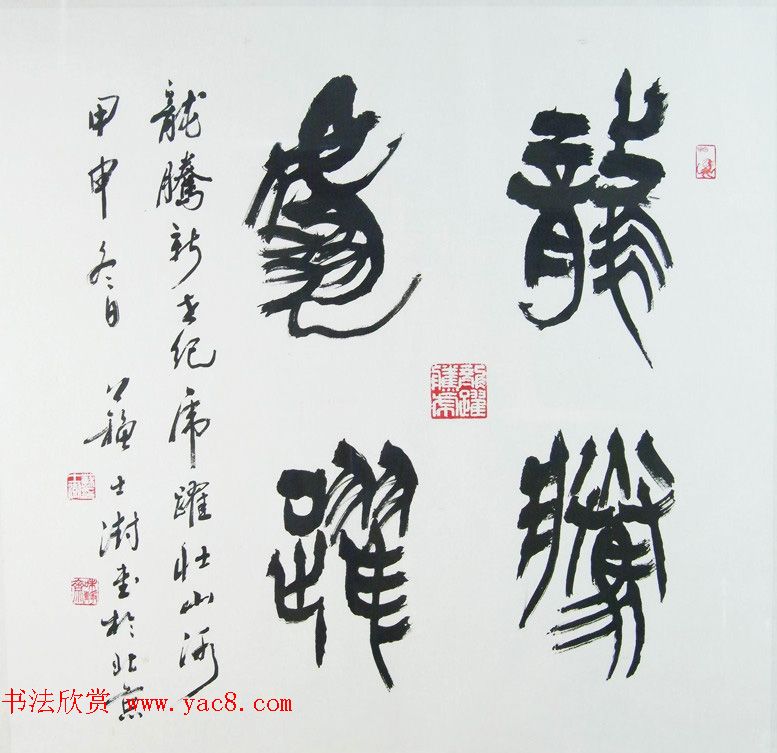 龍騰
虎躍
龍騰新世紀虎躍壯山河
甲申冬日蘇士澍書於北京
龍騰虎躍
书法欣赏 www.yac8.com